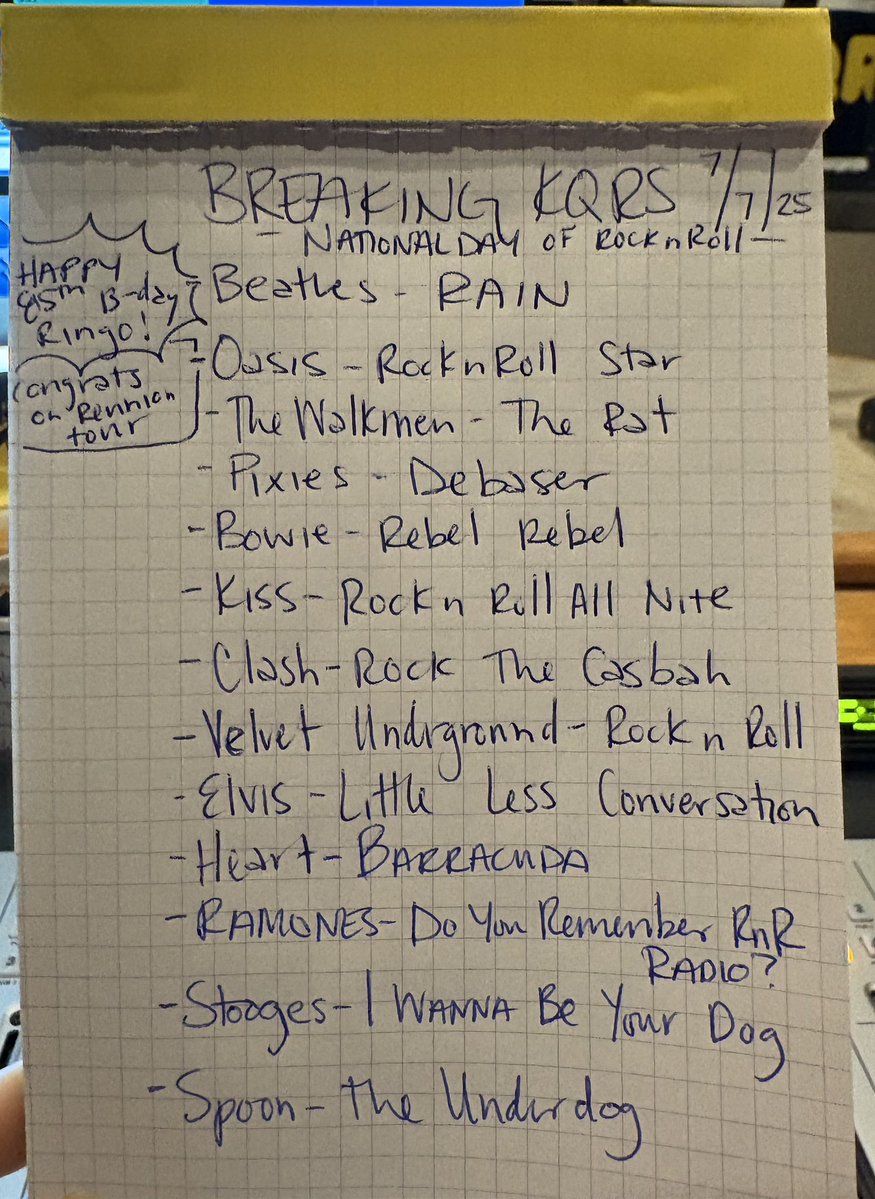 BREAKING KQRS 7/7/25
- NATIONAL DAY OF ROCK n ROLL -
HAPPY
85th B-day
Ringo!
- Beatles - RAIN
Congrats
on Reunion
tour
- Oasis - Rock n Roll Star
- The Walkmen - The Rat
- Pixies - Debaser
- Bowie - Rebel Rebel
- Kiss - Rock n Roll All Nite
- Clash - Rock The Casbah
- Velvet Undrground - Rock n Roll
- Elvis - Little Less Conversation
- Heart - BARRACUDA
- RAMONES - Do You Remember RnR
RADIO?
- Stooges - I WANNA Be Your Dog
- Spoon - The Underdog